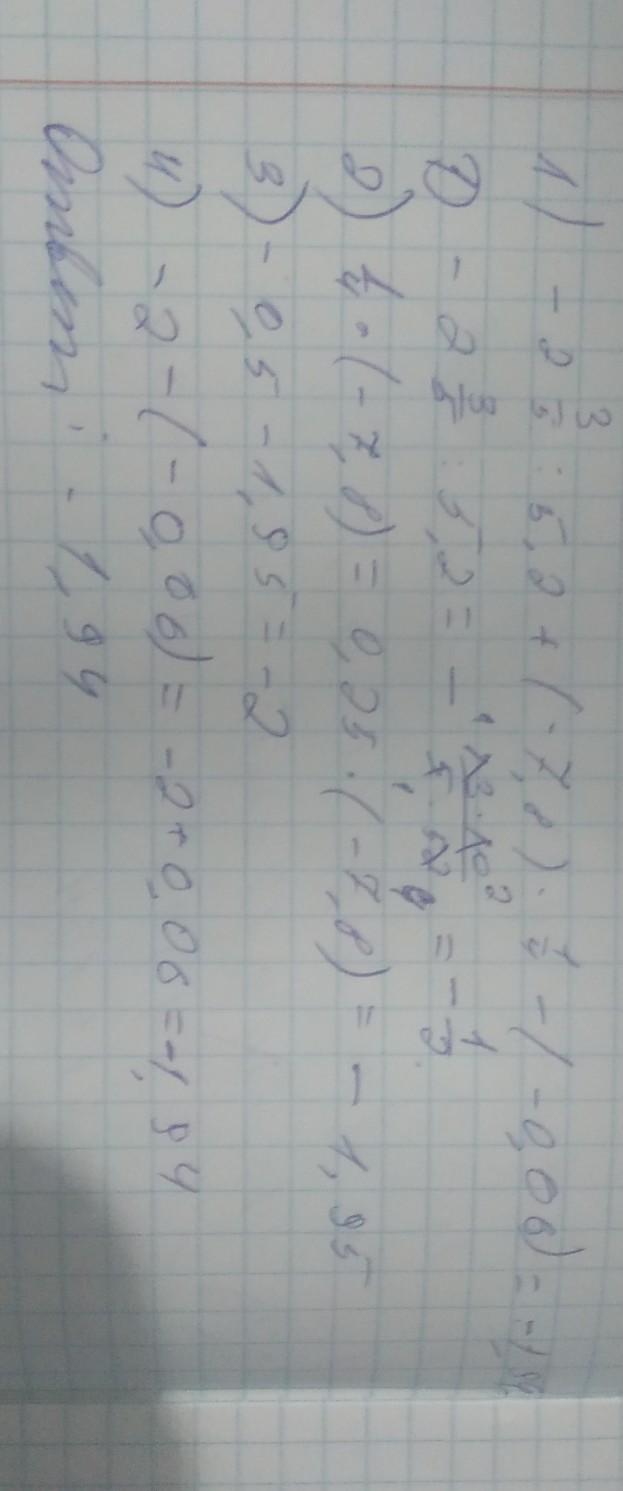 1) - 2 3/5 : 5,2 + (-7,8) · 1/4 - (-0,06) = -1,94
1) - 2 3/5 : 5,2 = - 13 · 10 / 5 · 52 = -
2) 1/4 · (-7,8) = 0,25 · (-7,8) = - 1,95
3) - 0,5 - 1,95 = -2
4) -2 - (-0,06) = -2 + 0,06 = -1,94
Ответ: - 1,94